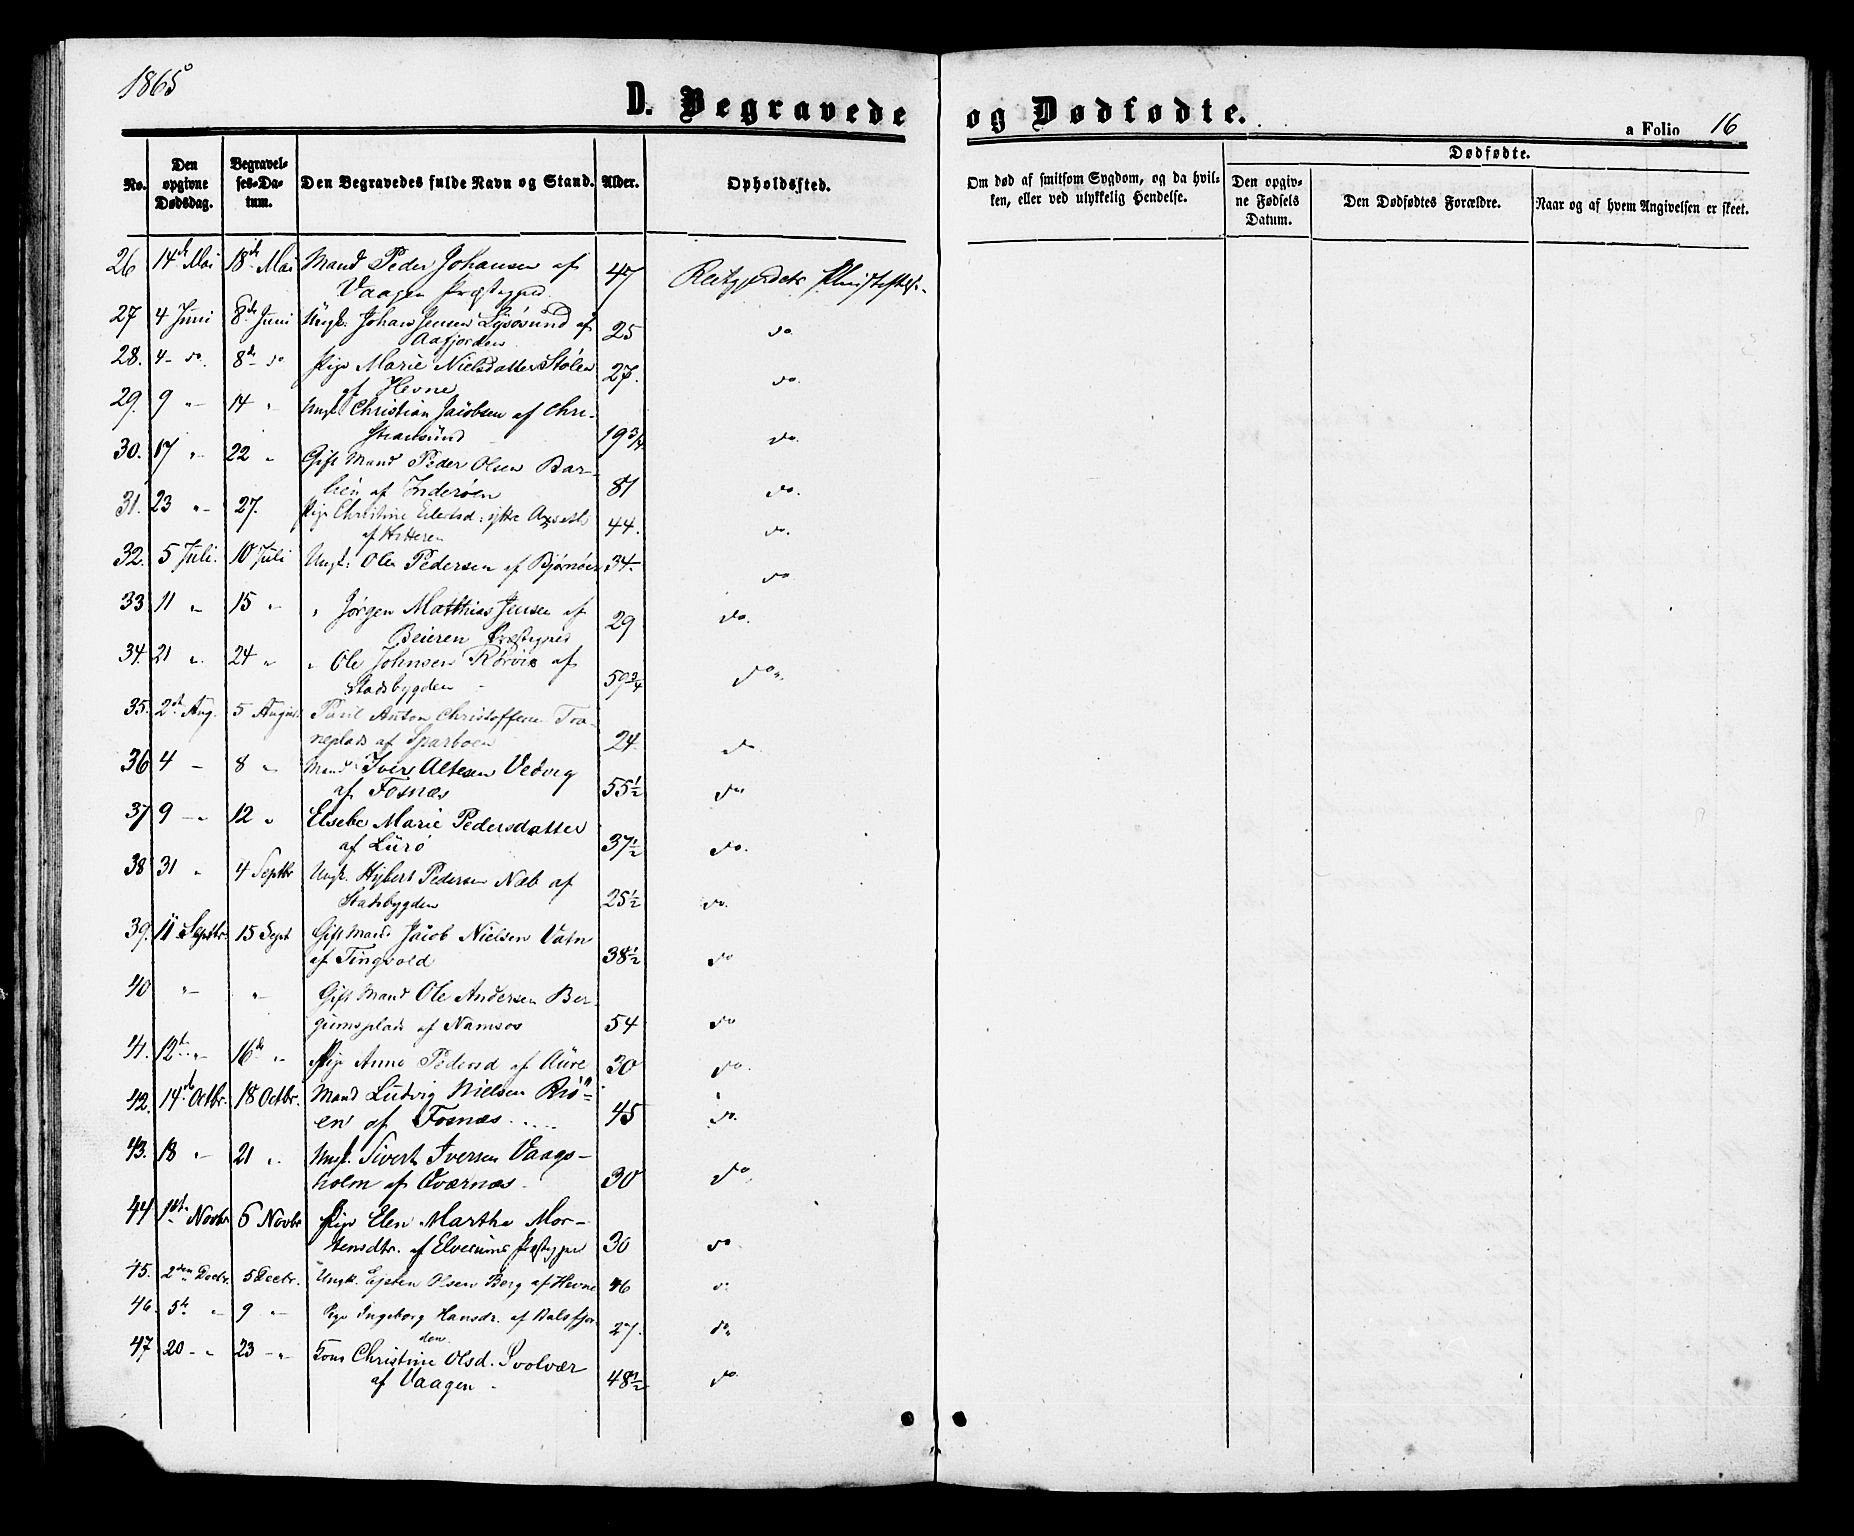 1865
D. Begravede og Dødfødte.
a Folio 16
No.
Den opgivne Dødsdag.
Begravelses-Datum.
Den Begravedes fulde Navn og Stand.
Alder.
Opholdssted.
Om død af smitsom Sygdom, og da hvilken, eller ved ulykkelig Hendelse.
Dødfødte.
Den opgivne Fødsels Datum.
Den Dødfødtes Forældre.
Naar og af hvem Angivelsen er skeet.
26 14de Mai 18de Mai Mand Peder Johansen af 47 Reitgjerdets
Vaagen Præstegjed.
27 4 Juni 8de Juni Ungk. Johan Jensen Lysøsund af 25 do
Aafjorden
28. 4 - do. 8de do Pige Marie Nielsdatter Stølen 27. do.
af Hevne
29. 9 " 14 " Ungk. Christian Jacobsen af Chri- 19 3/4 do.
stiansund
30. 17 " 22 " Gift Mand Peder Olsen Bar- 81 do.
lien af Inderøen
31. 23 " 27. Pige Christine Eilertsd: ytre Axseth 44. do.
af Hitteren
32. 5 Juli. 10 Juli Ungk: Ole Pedersen af Bjørnør 34. do
33 11 " 15 " " Jørgen Matthias Jensen af 29 do.
Beieren Præstegjed
34. 21 " 24 " " Ole Johnsen Rørvik af 59 3/4 do.
Stadsbygden
35. 2de Aug. 5 August Paul Anton Christoffersen Tra- 24 do
neplads af Sparboen
36 4 - 8 " Mand Iver Altesen Vedvig 55 1/2 do
af Fosnæs
37 9 - " 12 " Elsebe Marie Pedersdatter 37 1/2 do.
af Lurø
38 31 " 4 Septbr Ungk. Hybert Pedersen Næb af 25 1/2 do.
Stadsbygden
39. 11 Septbr. 15 Sept Gift Mand Jacob Nielsen Vatn 38 1/2 do
af Tingvold
40 " " Gift Mand Ole Andersen Ber- 54 do
gumsplads af Namsos
41. 12te " 16de " Pige Anne Pedersd af Aure 30 do.
42. 14de Octbr. 18 Octbr. Mand Ludvig Nielsen Riø- 45 do.
en af Fosnæs .....
43. 18 " 21 " Ungk. Sivert Iversen Vaags- 30 do.
holm af Qværnæs.
44 1ste Novbr 6 Novbr Pige Elen Martha Mor- 30 do
tensdtr. af Elverums Præstegjed
45. 2den Decbr. 5 Decbr. Ungk. Eysten Olsen Berg af Hevne 46 do
46. 5te " 9 " Pige Ingeborg Hansdr. af Balsfjor- 27. do
den
47 20 " 23 " Kone Christine Olsd. Svolvær 48 1/2 do
af Vaagen.